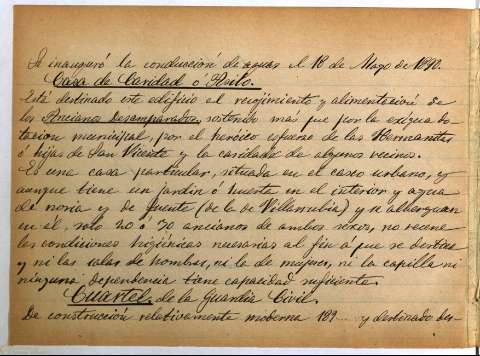 Se inauguró la conducción de aguas el 18 de Mayo de 1890.
Casa de Caridad ó Asilo.
Está destinado este edificio al recojimiento y alimentación de
los Ancianos desamparados, sostenido más que por la exigua do-
tación municipal, por el heróico esfuerzo de las Hermanitas
ó hijas de San Vicente y la caridad de algunos vecinos.
Es una casa particular, situada en el casco urbano, y
aunque tiene un jardin ó huerta en el interior y agua
de noria y de fuente (de la de Villarrubia) y se albergan
en él, solo 20 ó 30 ancianos de ambos sexos, no reune
las condiciones higiénicas necesarias al fin á que se destina
y ni las salas de hombres, ni la de mujeres, ni la capilla ni
ninguna dependencia tiene capacidad suficiente.
Cuartel de la Guardia Civil.
De construcción relativamente moderna 189... y destinado des-